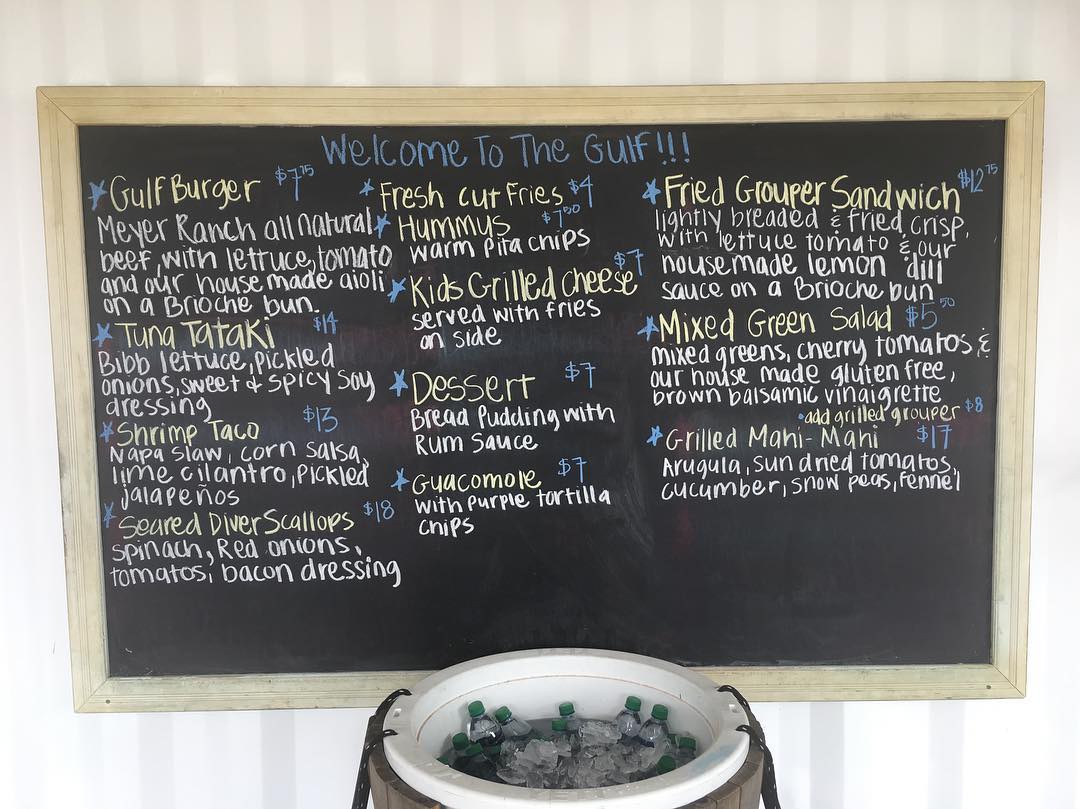 Welcome To The Gulf!!!
Gulf Burger $7.75
Meyer Ranch all natural
beef, with lettuce, tomato
and our house made aioli
on a Brioche bun.
Tuna Tataki $14
Bibb lettuce, pickled
onions, sweet & spicy soy
dressing
Shrimp Taco $13
Napa slaw, corn salsa,
lime cilantro, pickled
jalapeños
Seared Diver Scallops $18
spinach, Red onions,
tomatos, bacon dressing
Fresh cut Fries $4
Hummus $7.50
warm pita chips
Kids Grilled Cheese $7
served with fries
on side
Dessert $7
Bread Pudding with
Rum Sauce
Guacomole $7
with purple tortilla
chips
Fried Grouper Sandwich $12.75
lightly breaded & fried crisp,
with lettuce tomato & our
housemade lemon dill
sauce on a Brioche bun
Mixed Green Salad $5.50
mixed greens, cherry tomatos &
our house made gluten free,
brown balsamic vinaigrette
•add grilled grouper $8
Grilled Mahi-Mahi $17
Arugula, sun dried tomatos,
cucumber, snow peas, fennel